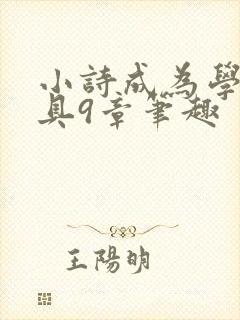 小詩成為學
具9章筆趣
王陽明